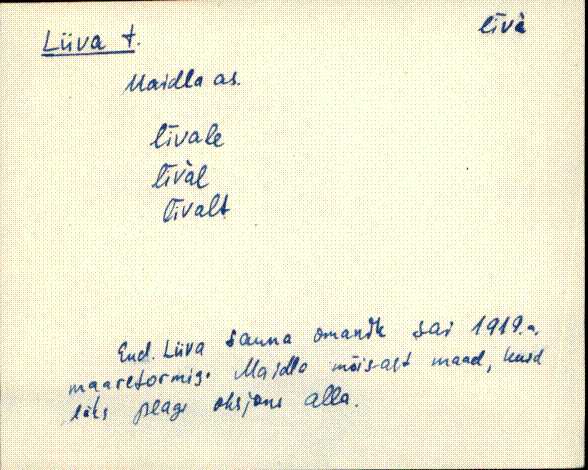 Liiva t.
līvà
Maidla as.
līvale
līvàl
līvalt
End. Liiva sauna omanik sai 1919.a.
maareformiga Maidla mõisast maad, kuid
läks peagi oksjoni alla.